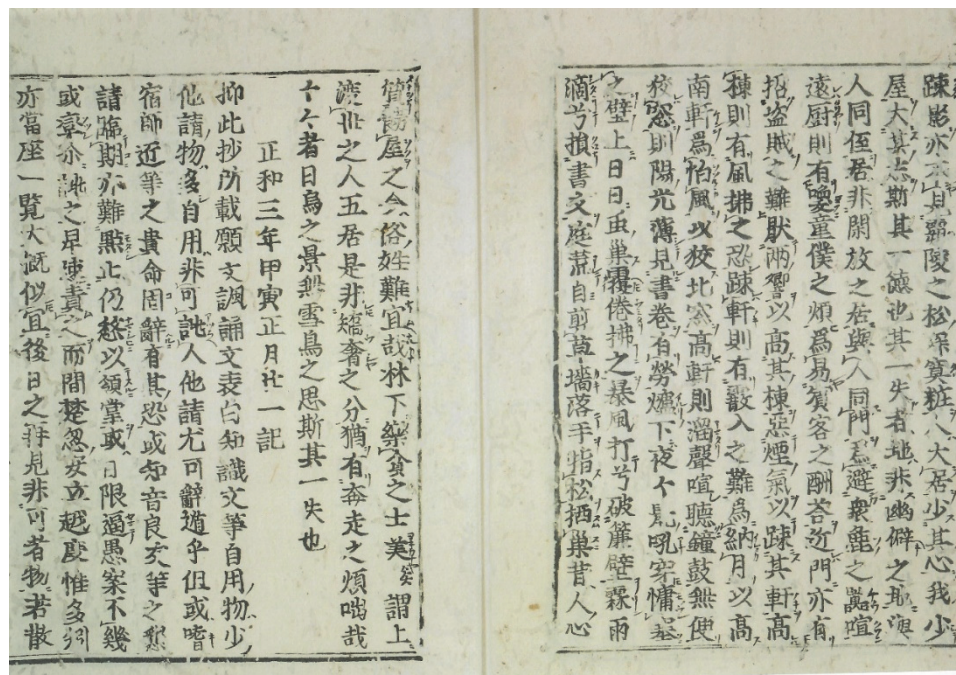 疎影亦不見覇陵之松採賁粧人大居少其心我少
屋大其志斯其一徳也其一失者地非幽僻之地頭
人同侄居非閑放之居與人同門不避衆麁之諠喧
遠厨則有喚童僕之煩為易賓客之酬荅近門亦有
招盗賊之難猒両響以高其棟惡煙氣以疎其軒高
棟則有風拂之恐疎軒則有散入之難為納月以高
南軒為怕風以狡北窓高軒則溜聲喧聴鐘鼓無使
狡窓則陽光薄見書巻有勞爐下夜々鬼吼穿慵墓
之壁上日日虫巣露倦拂之暴風打兮破簾壁霖雨
滴兮損書文庭萧自剪草墻落手指松栖巣昔人心
屋之人俗姓難宜哉林下樂貪之士美 謂上
渡世之人五居是非矯奢之分猶有奔走之煩咄哉
々々者日烏之景無雪鳥之思斯其一失也
正和三年甲寅正月廿一記
抑此抄所載願文諷誦文表白知識文等自用物少
他請物多自用非可訛人他請尤可辭遁乎但或嗜
宿師近等之貴命固辭有其恐或知音良友等之
請臨期亦難黙止仍慗以領掌或日限逼愚案不幾
或臺余訛之早速責之而間楚忽安立越度惟多
亦當座一覧大概似宜後日之再見非可者物若散